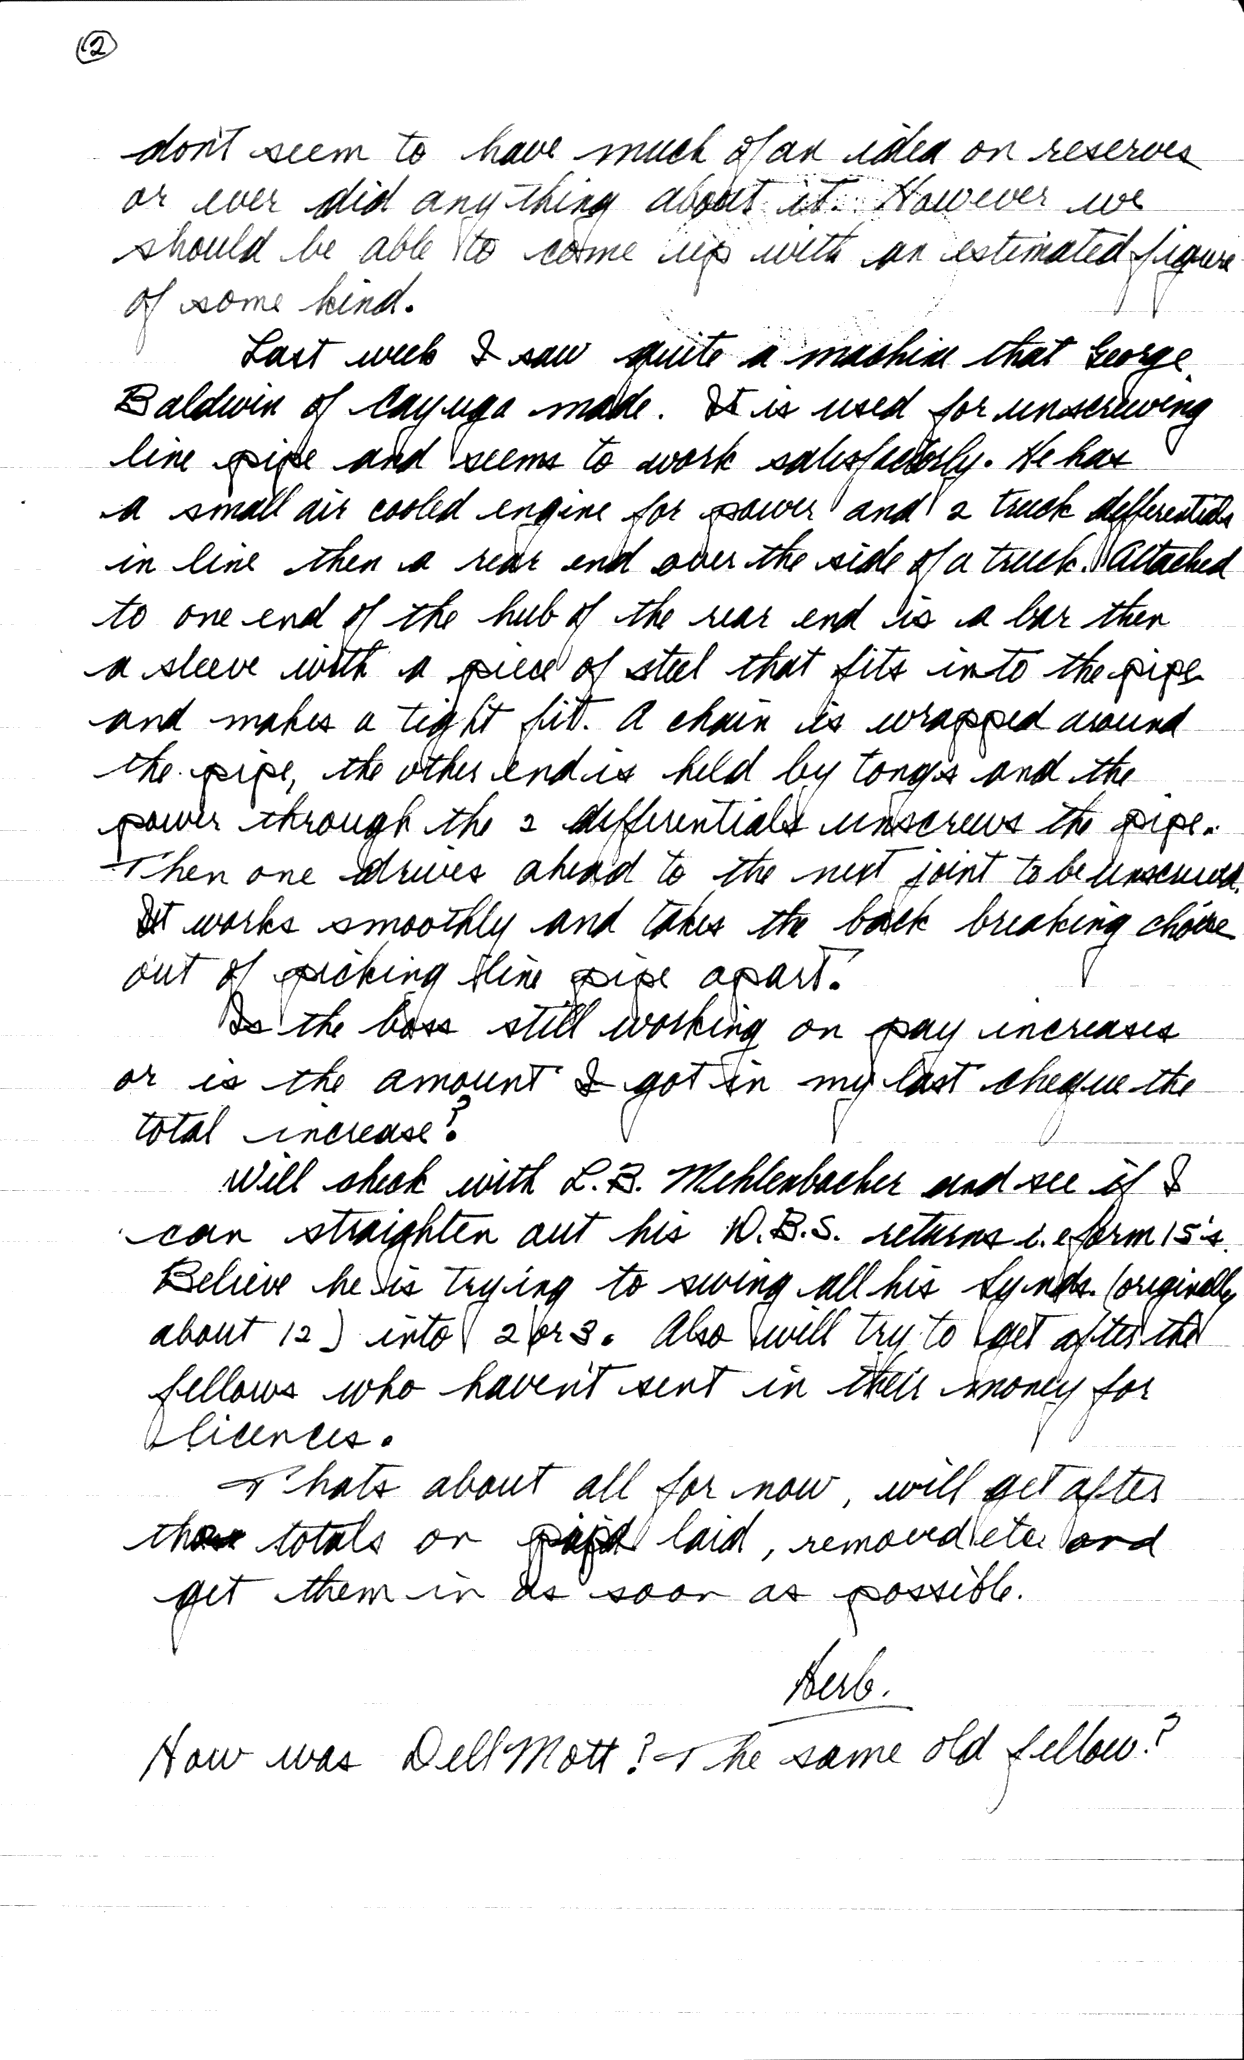 (2)
don't seem to have much of an idea on reserves
or ever did anything about it. However we
should be able to come up with an estimated figure
of some kind.
Last week I saw quite a machine that George
Baldwin of Cayuga made. It is used for unscrewing
line pipe and seems to work satisfactorly. He has
a small air cooled engine for power and 2 truck differentials
in line then a rear end over the side of a truck. Attached
to one end of the hub of the rear end is a bar then
a sleeve with a piece of steel that fits into the pipe
and makes a tight fit. A chain is wrapped around
the pipe, the other end is held by tongs and the
power through the 2 differentials unscrews the pipe.
Then one drives ahead to the next joint to be unscrewed.
It works smoothly and takes the back breaking choire
out of picking line pipe apart.
Is the boss still working on pay increases
or is the amount I got in my last cheque the
total increase?
Will check with L.B. Mehlenbacher and see if I
can straighten out his D.B.S. returns i.e form 15's.
Believe he is trying to swing all his Synds. (originally
about 12) into 2 or 3. Also will try to get after the
fellows who haven't sent in their money for
licences.
Thats about all for now, will get after
those totals on pipe laid, removed etc. and
get them in as soon as possible.
Herb.
How was Dell Mott? The same old fellow?